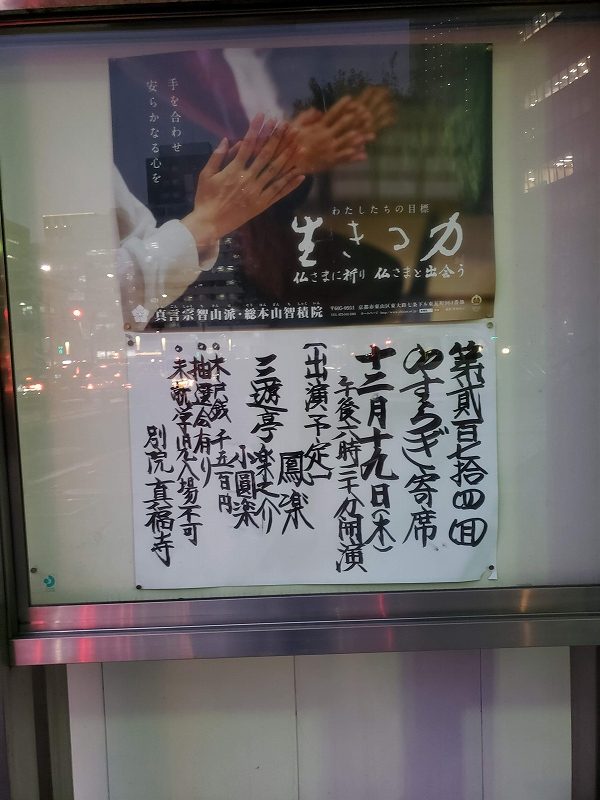 手を合わせ
安らかなる心を
わたしたちの目標
生きる力
仏さまに祈り 仏さまと出会う
真言宗智山派・総本山智積院
第貮百七拾四回
やすらぎ寄席
十二月十九日(木)
午後六時二十分開演
〔出演予定〕
鳳楽
三遊亭 楽之介
小圓楽
・木戸銭 千五百円
・抽選会有り
・未就学児入場不可
別院 真福寺